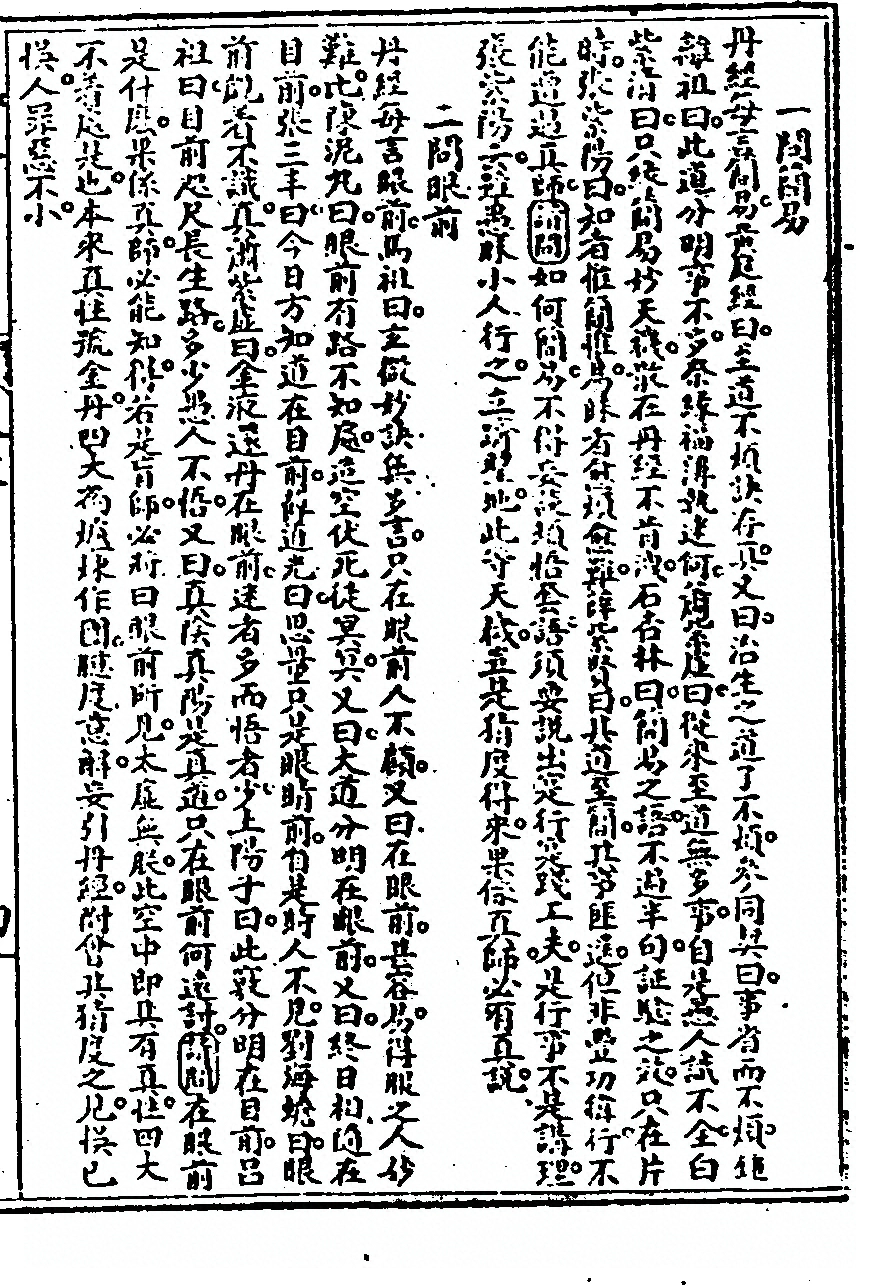 一問簡易
丹經每言簡易黃庭經曰至道不煩訣存真又曰治生之道了不煩參同契曰事省而不煩鍾
離祖曰此道分明事不多奈緣福薄執迷何薛紫虛曰從來至道無多事自是愚人識不全白
紫清曰只緣簡易妙天機散在丹經不肯洩石杏林曰簡易之語不過半句証驗之效只在片
時張紫陽曰知者惟簡惟易昧者愈煩愈難薛紫賢曰其道至簡其事匪遙但非豐功偉行不
能遭遇真師請問如何簡易不得妄談頓悟套語須要說出實行實踐工夫是行事不是講理
張紫陽云雖愚昧小人行之立躋聖地此等天機豈是猜度得來果係真師必有真說
二問眼前
丹經每言眼前馬祖曰玄微妙訣無多言只在眼前人不顧又曰在眼前甚容易得服之人妙
難比陳泥丸曰眼前有路不知處造空伏死徒冥冥又曰大道分明在眼前又曰終日相隨在
目前張三丰曰今日方知道在目前薛道光曰思量只是眼睛前自是時人不見劉海蟾曰眼
前覰着不識真蕭紫虛曰金液還丹在眼前迷者多而悟者少上陽子曰此竅分明在目前呂
祖曰目前咫尺長生路多少愚人不悟又曰真陰真陽是真道只在眼前何遠討請問在眼前
是什麼果係真師必能知得若是盲師必將曰眼前所見太虛無朕此空中即具有真性四大
不着處是也本來真性號金丹四大為爐煉作團臆度意解妄引丹經附會其猜度之見悞已
悞人罪惡不小